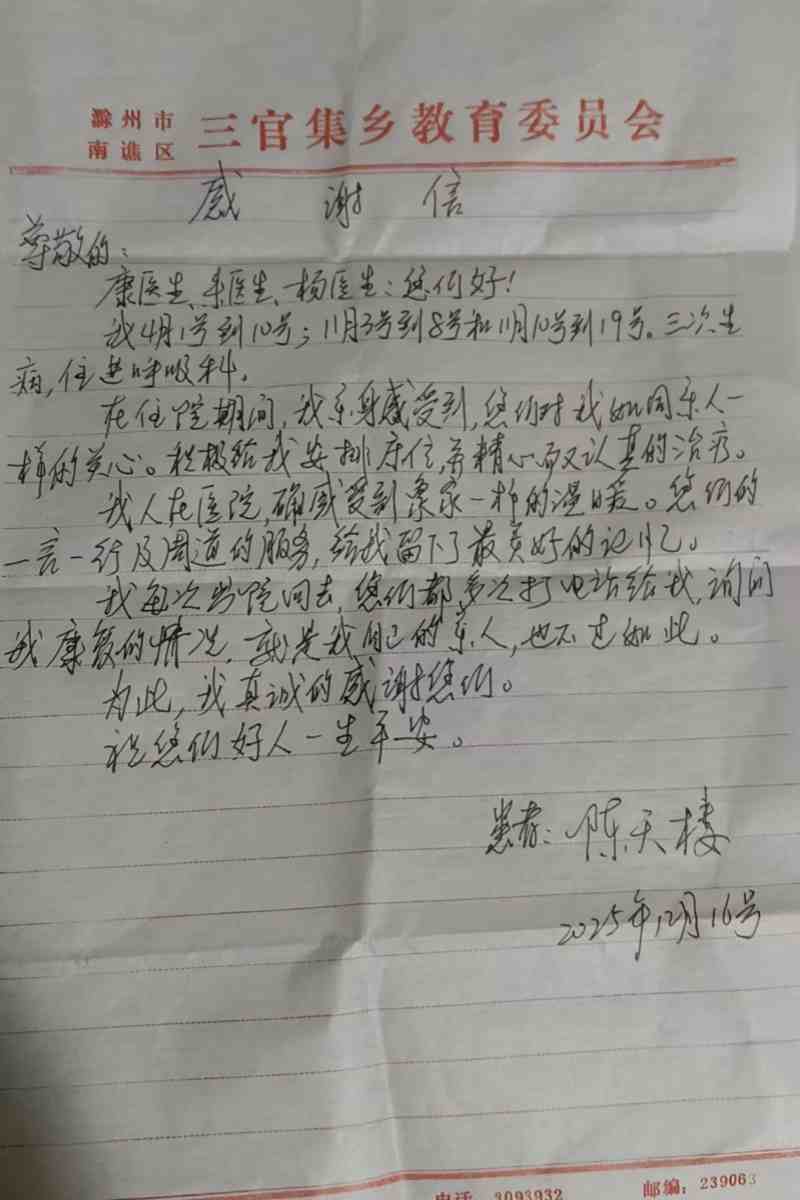 滁州市
南谯区 三官集乡教育委员会
感谢信
尊敬的:
康医生、朱医生、杨医生:您们好!
我4月1号到10号;11月3号到8号和11月10号到19号。三次生
病,住进呼吸科,
在住院期间,我亲身感受到,您们对我如同亲人一
样的关心。积极给我安排床位,并精心而又认真的治疗。
我人在医院,确感受到象家一样的温暖。您们的
一言一行及周道的服务,给我留下了最美好的记忆。
我每次出院回去,您们都多次打电话给我,询问
我康复的情况,就是我自己的亲人,也不过如此。
为此,我真诚的感谢您们。
祝您们好人一生平安。
患者:陈天楼
2025年12月16号
电话 3093932 邮编:239063